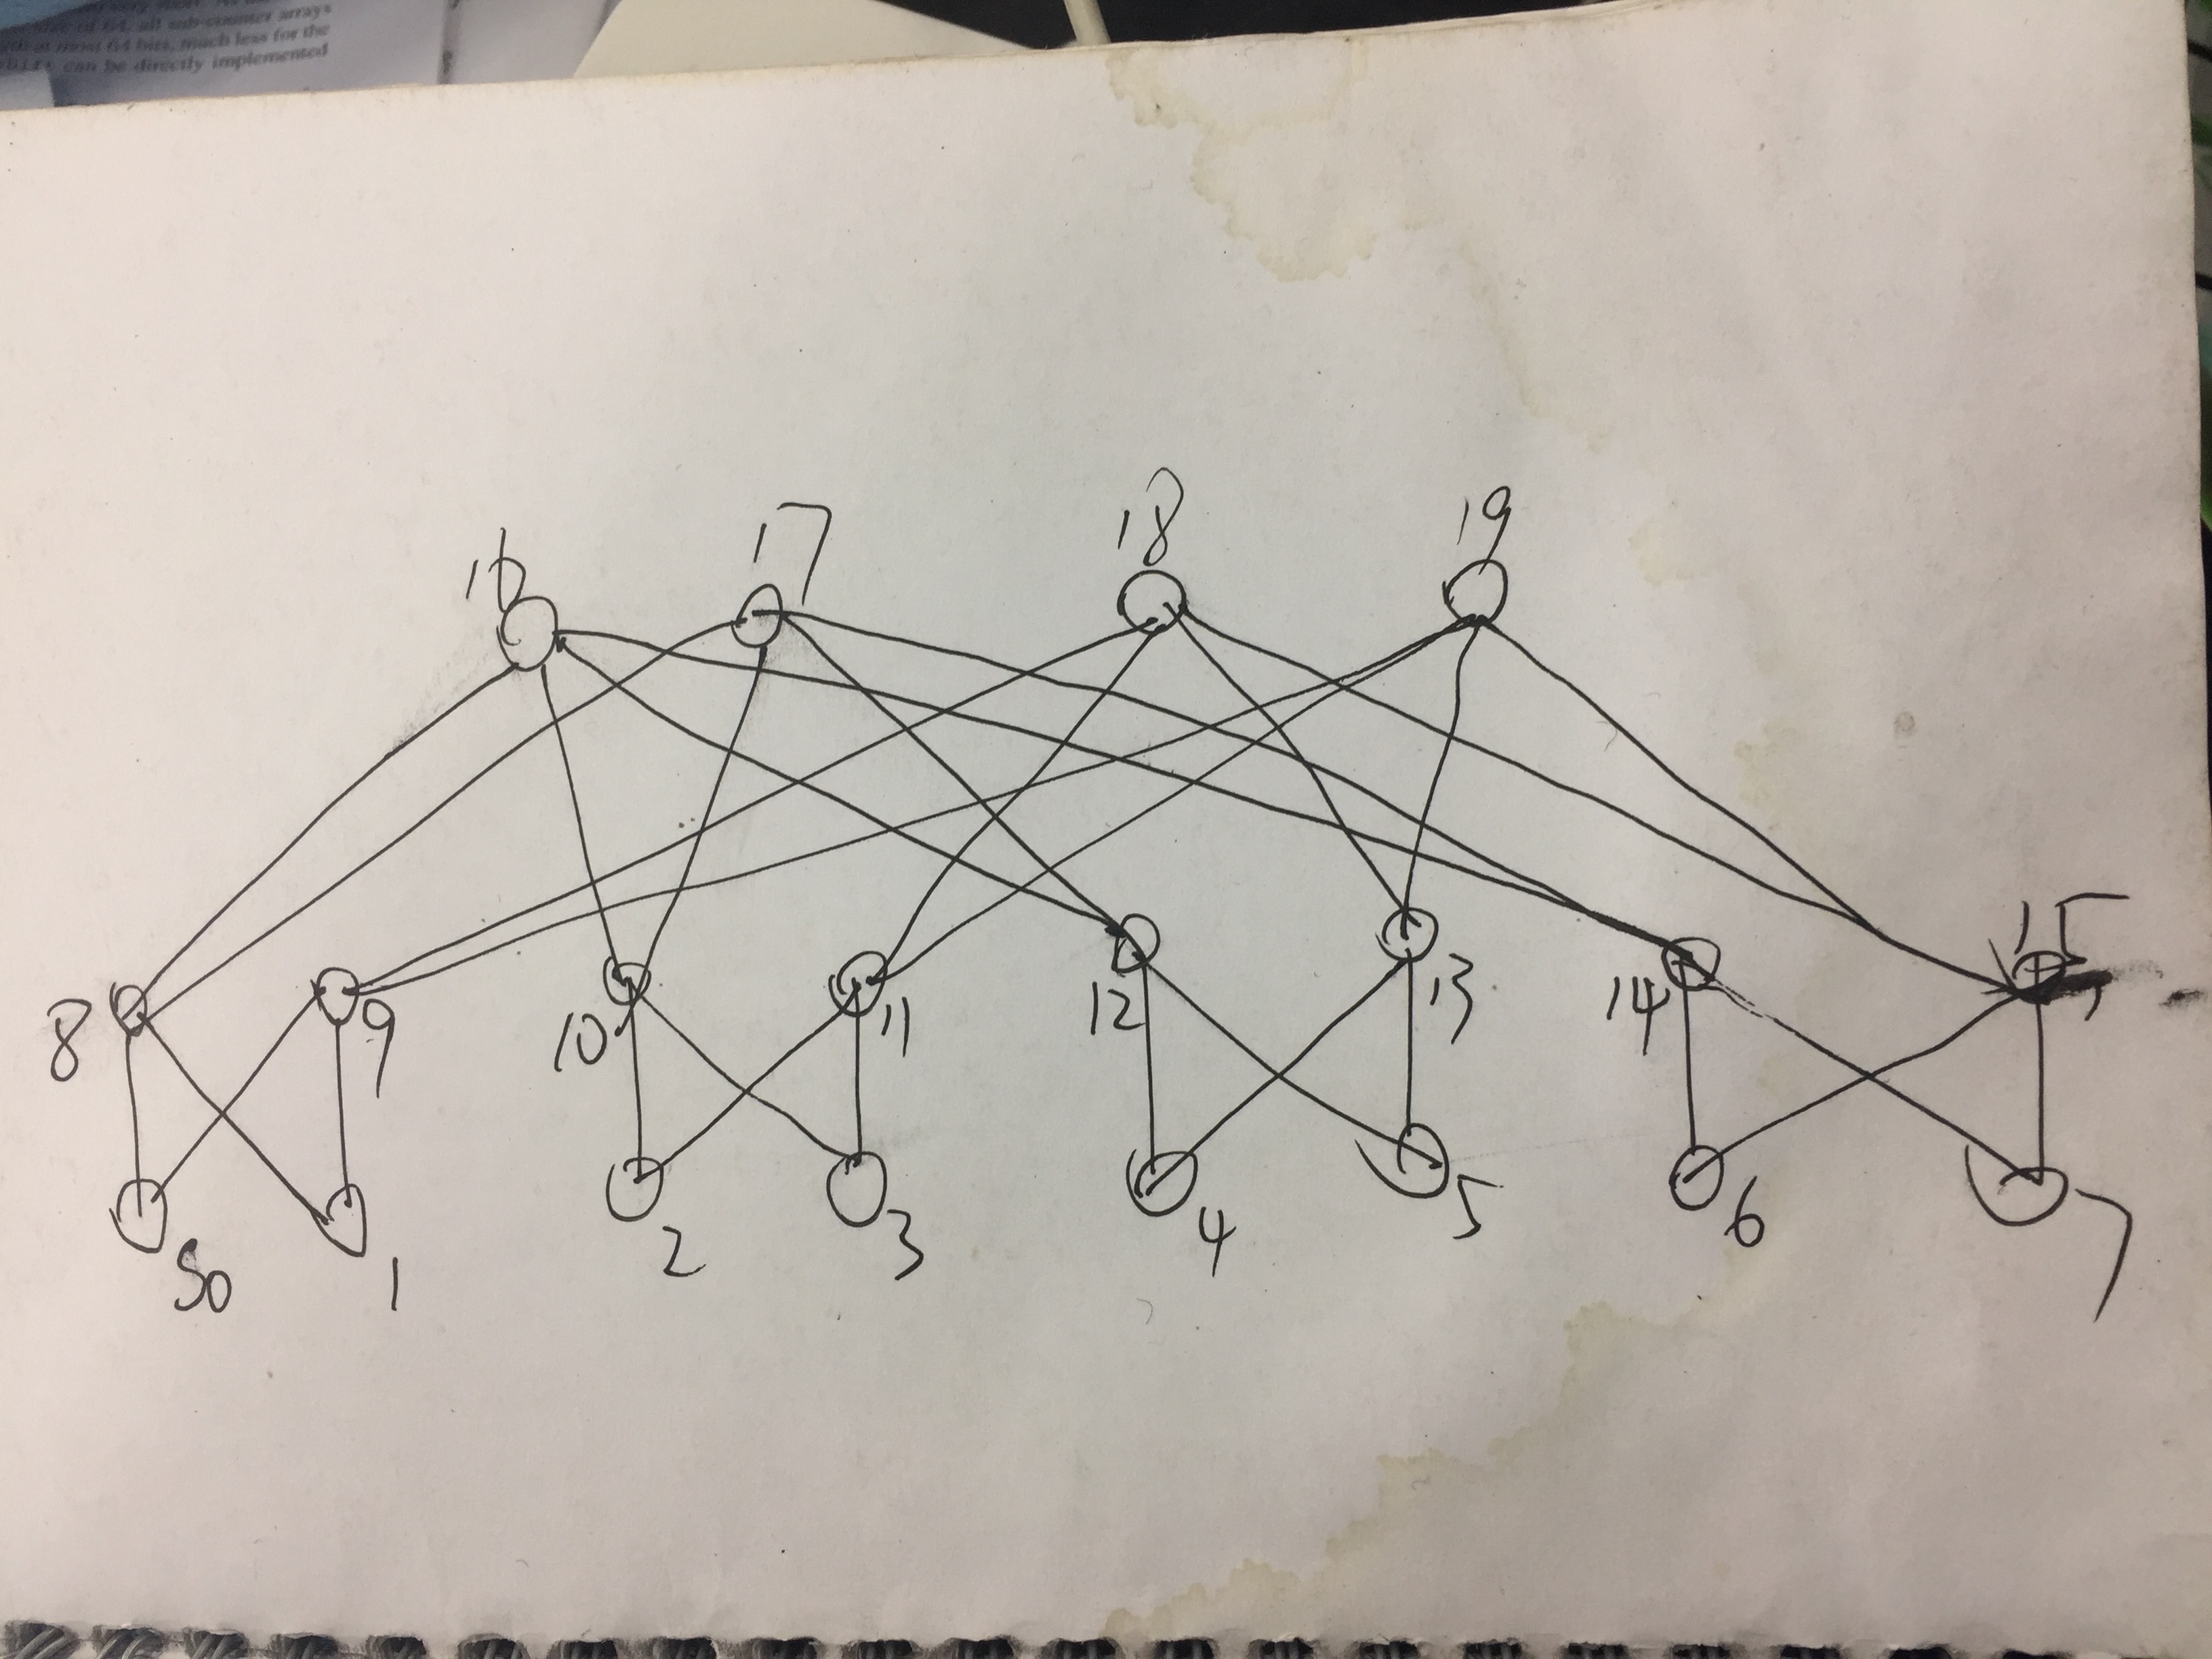 size of 64, all sub-counter arrays
at most 64 bits, much less for the
can be directly implemented
16 17 18 19
8 9 10 11 12 13 14 15
S0 1 2 3 4 5 6 7